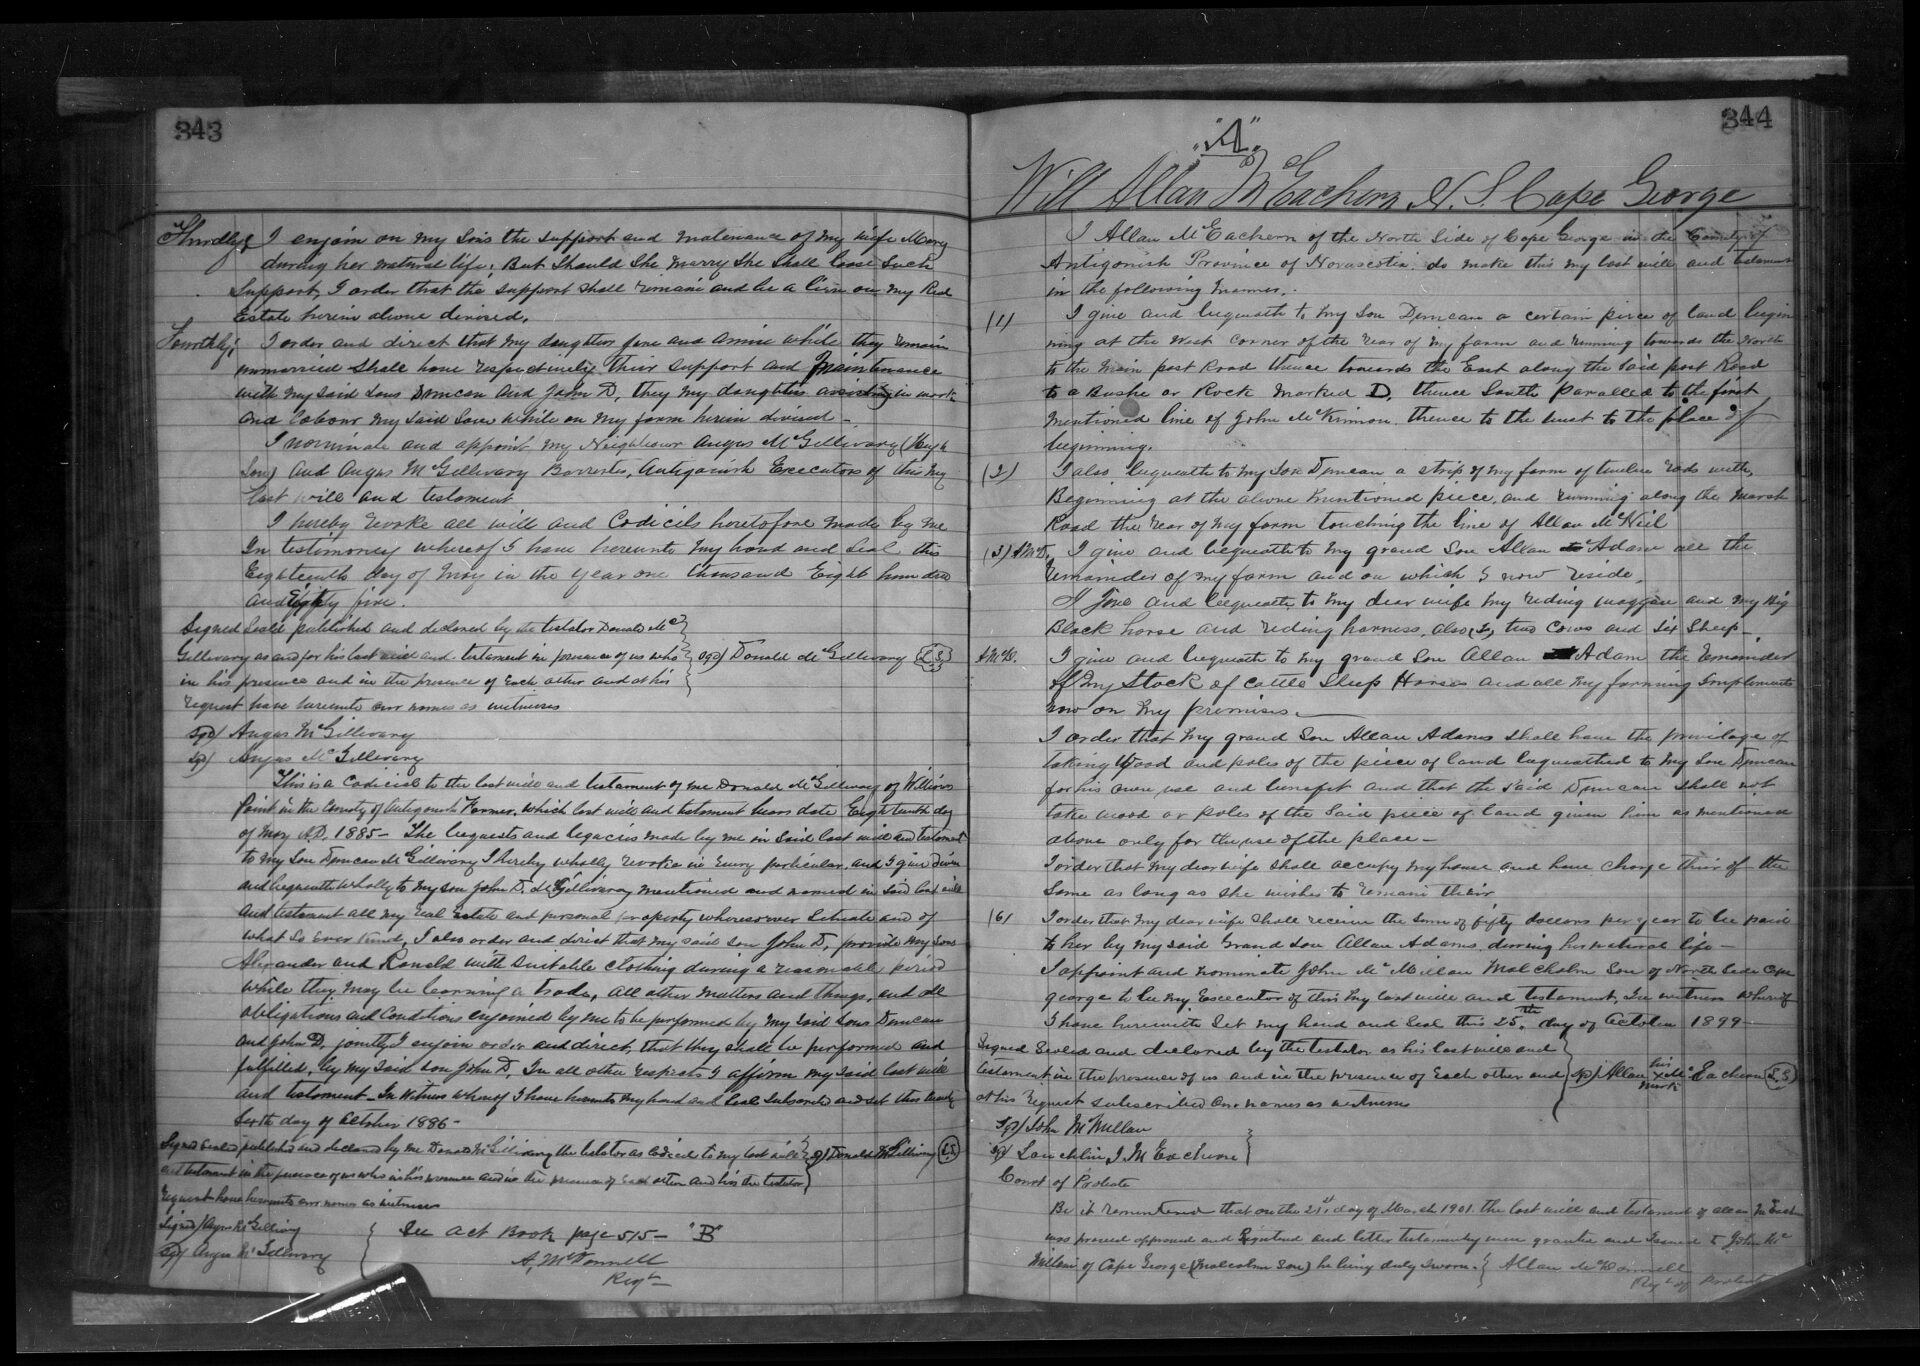 343
Thirdly I enjoin on my Sons the support and maintenance of my wife Mary
during her natural life; But Should She marry She shall loose Such
Support, I order that the support shall remain and be a lien on my Real
Estate herein above devised.
Fourthly; I order and direct that my daughters Jane and Annie while they remain
unmarried shall have respectively their support and maintenance
with my said Sons Duncan and John D, they my daughters assisting in work
and labour my said Sons while on my farm herein devised -
I nominate and appoint my Neighbour Angus McGillivary (Hugh
Son) and Angus McGillivary Barrister, Antigonish Executors of this my
last will and testament
I hereby revoke all will and Codicils heretofore made by me
In testimony whereof I have hereunto my hand and Seal this
Eighteenth day of May in the year one thousand Eight hundred
and Eighty five.
Signed Seald published and declared by the testator Donald Mc
Gillivary as and for his last will and testament in presence of us who
in his presence and in the presence of Each other and at his
request have hereunto our names as witnesses
Sgd) Donald McGillivary L.S.
Sgd) Angus McGillivary
Sgd) Angus McGillivary
This is a Codicial to the last will and testament of me Donald McGillivary of Williams
Point in the County of Antigonish Farmer, which last will and testament bears date Eighteenth day
of May A.D. 1885 - The bequests and legacies made by me in said last will and testament
to my Son Duncan McGillivary I hereby wholly revoke in Every particular, and I give devise
and bequeath wholly to my son John D. McGillivary mentioned and named in said last will
and testament all my real Estate and personal property wheresoever Situate and of
what So Ever kind, I also order and direct that my said son John D, provide my sons
Alexander and Ronald with suitable clothing during a reasonable period
while they may be learning a trade, all other matters and things, and all
obligations and Conditions enjoined by me to be performed by my said sons Duncan
and John D. jointly I enjoin order and direct, that they shall be performed and
fulfilled, by my said son John D, In all other respects I affirm my said last will
and testament - In Witness whereof I have hereunto my hand and Seal Subscribed and set this twenty
Sixth day of October 1886 -
Signed sealed published and declared by me Donald McGillivary the testator as Codicil to my last will
and testament in the presence of us who in his presence and in the presence of Each other and his the testator
request have hereunto our names as witnesses
Sg) Donald McGillivary L.S.
Signed) Angus McGillivary
Sgd) Angus McGillivary
See Act Book page 515 - "B"
A. McDonnell
Regr
344
"A"
Will Allan McEachern N. S. Cape George
I Allan McEachern of the North Side of Cape George in the County of
Antigonish Province of Novascotia, do make this my last will and testament
in the following manner.
(1) I give and bequeath to my Son Duncan a certain piece of land begin
ning at the West Corner of the rear of my farm and running towards the North
to the Main post Road thence towards the East along the said post Road
to a Bushe or Rock marked D, thence South Paralled to the first
mentioned line of John McKinnon, thence to the west to the place of
beginning.
(2) I also bequeath to my Son Duncan a strip of my farm of twelve rods with,
Beginning at the above mentioned piece, and running along the marsh
Road the rear of my farm touching the line of Allan McNeil
(3) A McD. I give and bequeath to my grand Son Allan Adam all the
remainder of my farm and on which I now reside.
I give and bequeath to my dear wife my riding waggon and my Big
Black horse and riding harness, also two Cows and Six Sheep -
A McD. I give and bequeath to my grand Son Allan Adam the remainder
of my Stock of Cattle Sheep Horses and all my farming Implements
now on my premises.
I order that my grand Son Allan Adams shall have the privilage of
taking Wood and poles of the piece of land bequeathed to my Son Duncan
for his own use and benefit and that the said Duncan shall not
take wood or poles of the said piece of land given him as mentioned
above only for the use of the place -
I order that my dear wife shall occupy my house and have charge their of the
Same as long as she wishes to remain their
(6) I order that my dear wife shall receive the Sum of fifty dollars per year to be paid
to her by my said Grand Son Allan Adams during her natural life -
I appoint and nominate John McMillan Malcholm Son of North Side Cape
george to be my Executor of this my last will and testament, In witness whereof
I have herewith Set my hand and Seal this 25th day of October 1899 -
Signed Sealed and declared by the testator as his last will and
testament in the presence of us and in the presence of Each other and
at his request subscribed our names as witnesses
Sg) Allan his x mark McEachern L.S.
Sgd) John McMillan
Sgd) Lauchlin J. McEachern
Court of Probate
Be it remembered that on the 21st day of March 1901 the last will and testament of Allan McEachern
was proved approved and Registered and letter testamentary were granted and Issued to John Mc
Millan of Cape George (Malcolm Son) he being duly sworn.
Allan McDonnell
Regr of Probate